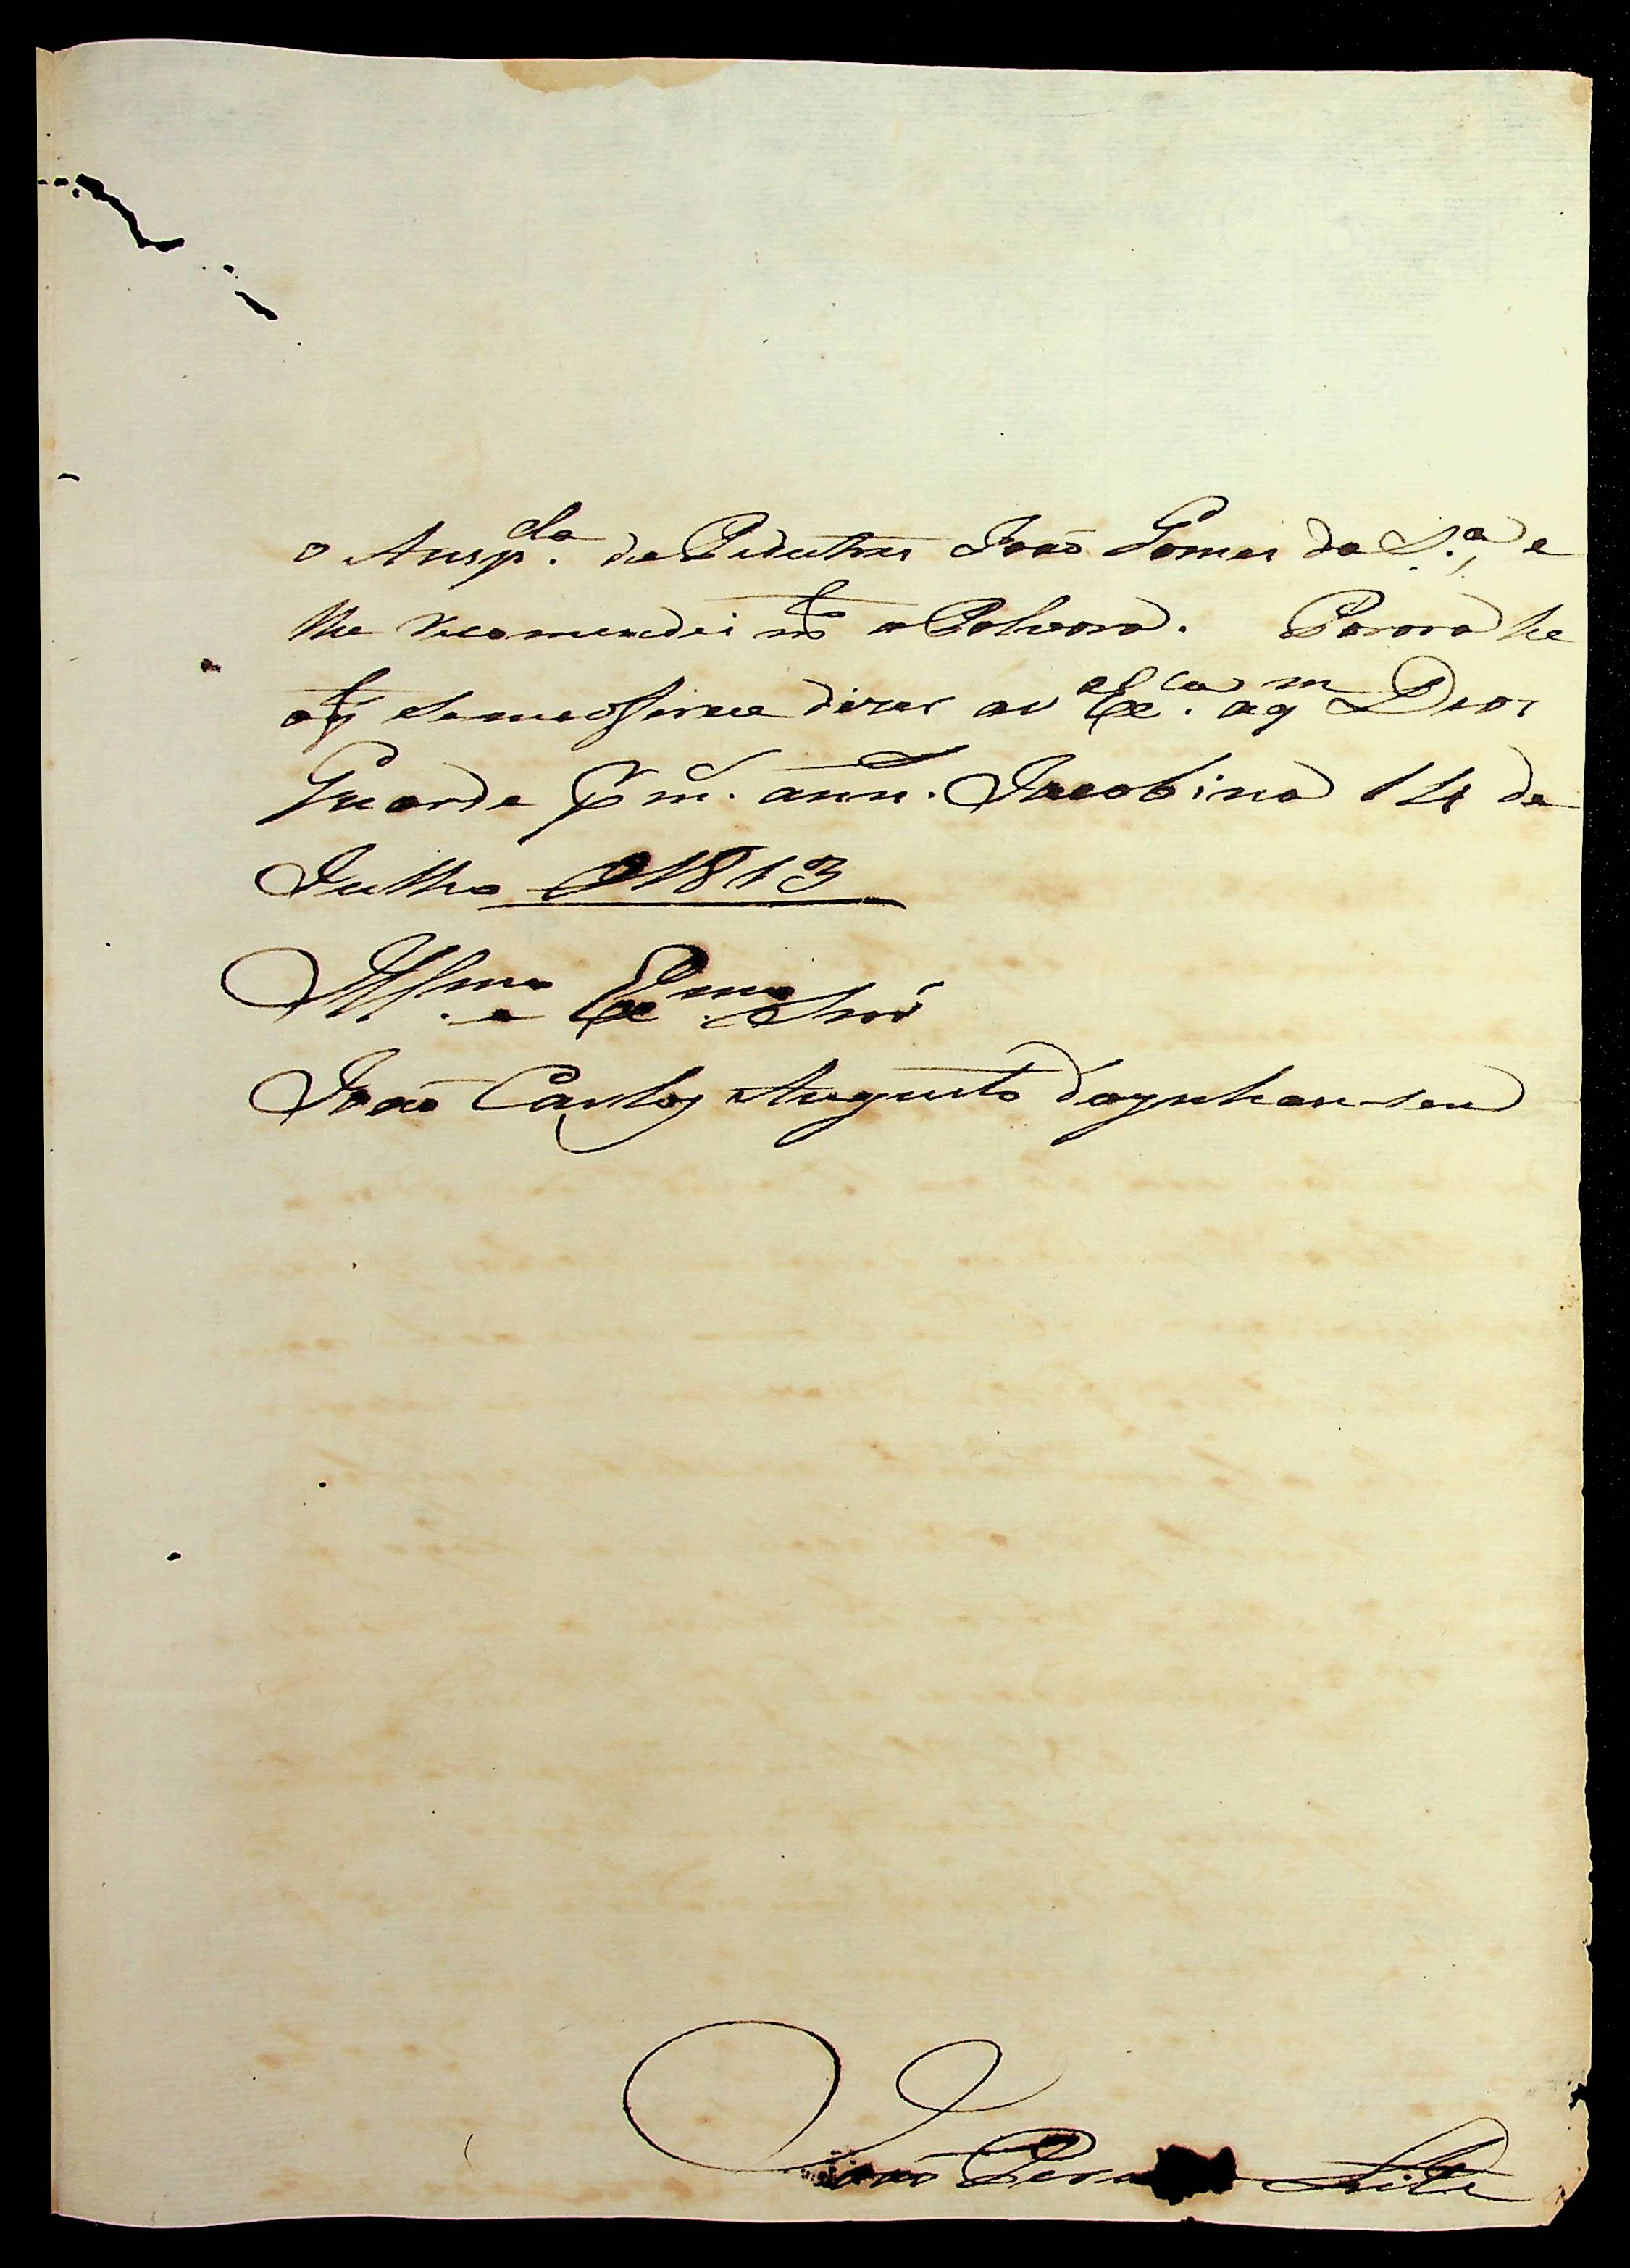 o Ansp.da de Pedestres João Gomes da S.a, e
lhe recomendei mto a Polvora. Parora he
oq̃ se me oferece dizer a V Exca. aqm Deos
Guarde pr m.s ann.s Jacobina 14 de
Julho d 1813
Illmo. e Exmo. Snr
João Carlos Augusto d'oynhausen
João Pera Leite